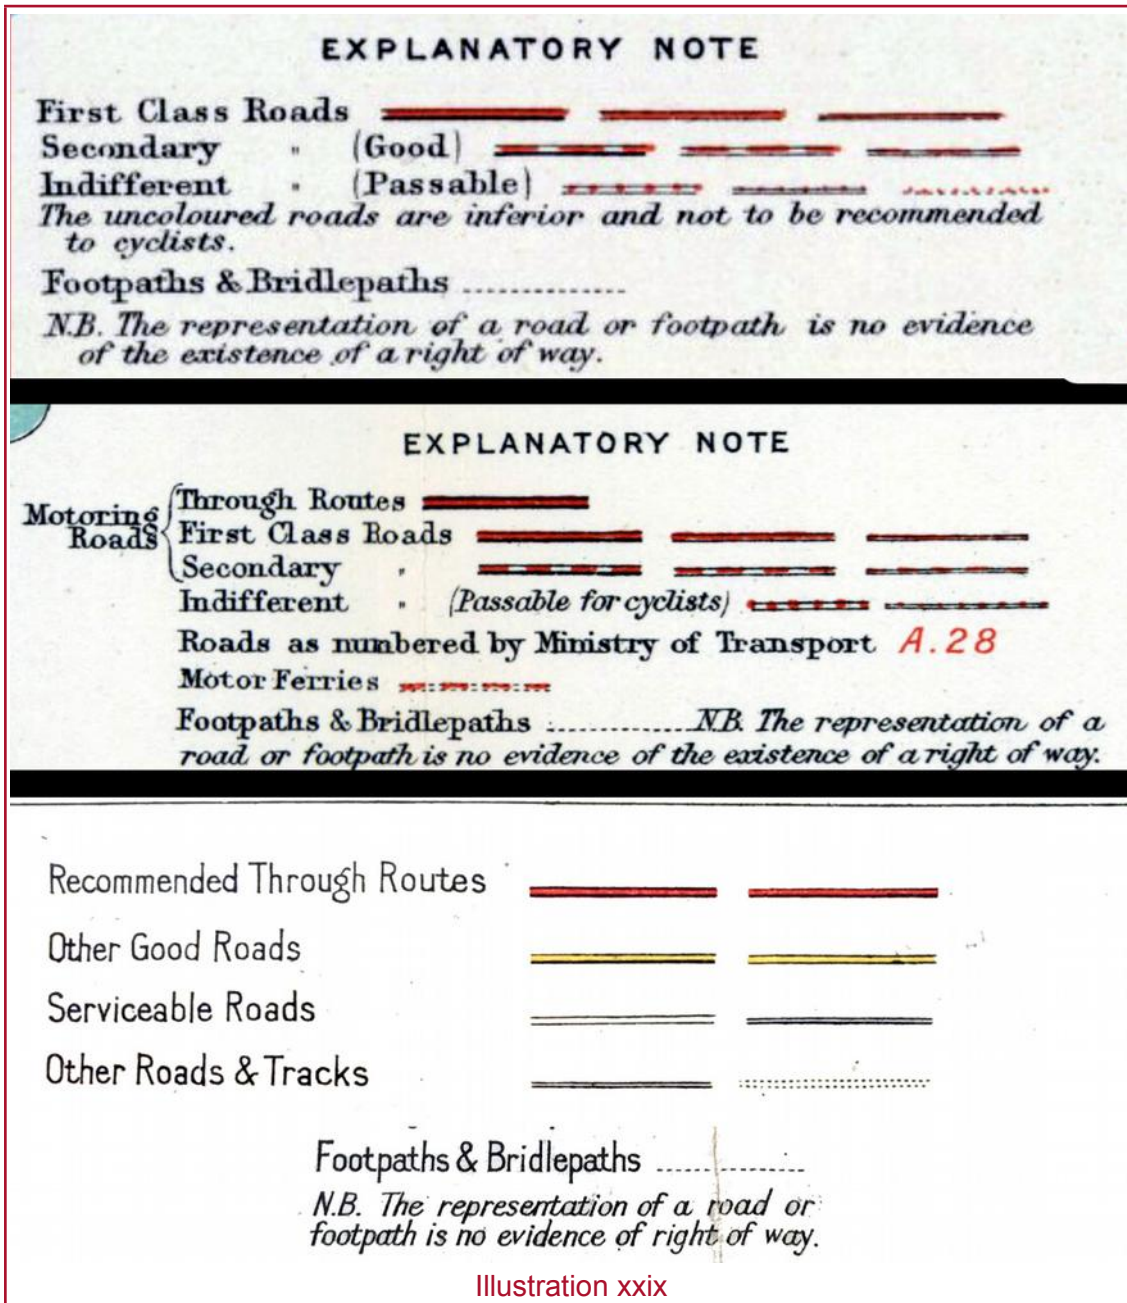 EXPLANATORY NOTE
First Class Roads
Secondary " (Good)
Indifferent " (Passable)
The uncoloured roads are inferior and not to be recommended
to cyclists.
Footpaths & Bridlepaths
N.B. The representation of a road or footpath is no evidence
of the existence of a right of way.
EXPLANATORY NOTE
Motoring Roads
Through Routes
First Class Roads
Secondary "
Indifferent " (Passable for cyclists)
Roads as numbered by Ministry of Transport A.28
Motor Ferries
Footpaths & Bridlepaths N.B. The representation of a
road or footpath is no evidence of the existence of a right of way.
Recommended Through Routes
Other Good Roads
Serviceable Roads
Other Roads & Tracks
Footpaths & Bridlepaths
N.B. The representation of a road or
footpath is no evidence of right of way.
Illustration xxix